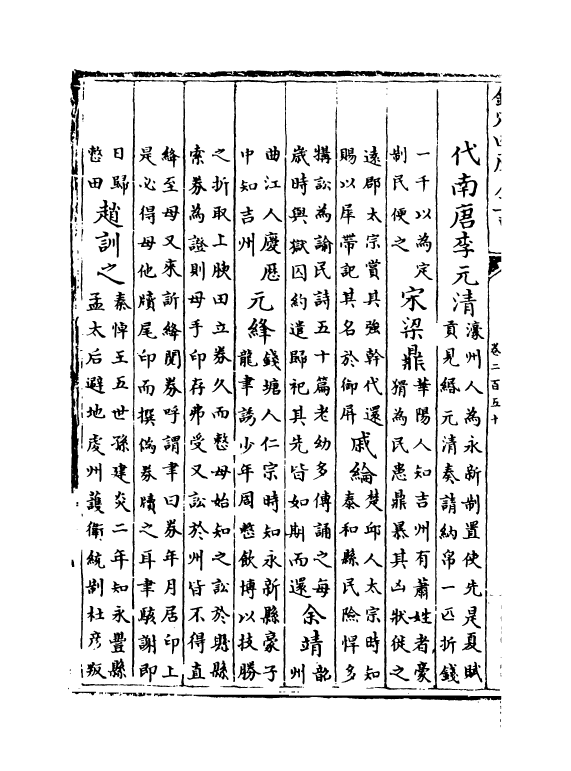 卷二百五十
代南唐李元清
濠州人為永新制置使先是夏賦
貢見緡元清奏請納帛一匹折錢
一千以為定
制民便之
宋梁鼎
華陽人知吉州有蕭姓者豪
猾為民患鼎暴其凶狀徙之
遠郡太宗賞其強幹代還
賜以犀帶記其名於御屏
戚綸
楚邱人太宗時知
泰和縣民險悍多
搆訟為諭民詩五十篇老幼多傳誦之每
歲時與獄囚約遣歸祀其先皆如期而還
余靖
韶
州
曲江人慶厯
中知吉州
元絳
錢塘人仁宗時知永新縣豪子
龍聿誘少年周整飲博以技勝
之折取上腴田立券久而整母始知之訟於縣縣
索券為證則母手印存弗受又訟於州皆不得直
絳至母又來訴絳閱券呼謂聿曰券年月居印上
是必得母他牘尾印而撰偽券牘之耳聿駭謝即
日歸
整田
趙訓之
秦悼王五世孫建炎二年知永豐縣
孟太后避地虔州護衛統制杜彦叛